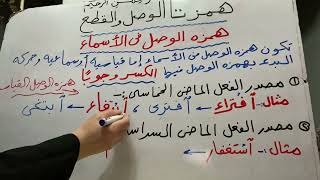 همزتا الوصل والقطع
همزة الوصل فى الأسماء
تكون همزة الوصل من الأسماء إما قياسية أو سماعية وحركة
البدء بهمزة الوصل فيها الكسر وجوبًا همزة الوصل القياسية
① مصدر الفعل الماضى الخماسى :-
مثال: افتراء ← افترى ، ابتغاء ← ابتغى
② مصدر الفعل الماضى السداسى
مثال :- استغفار ←